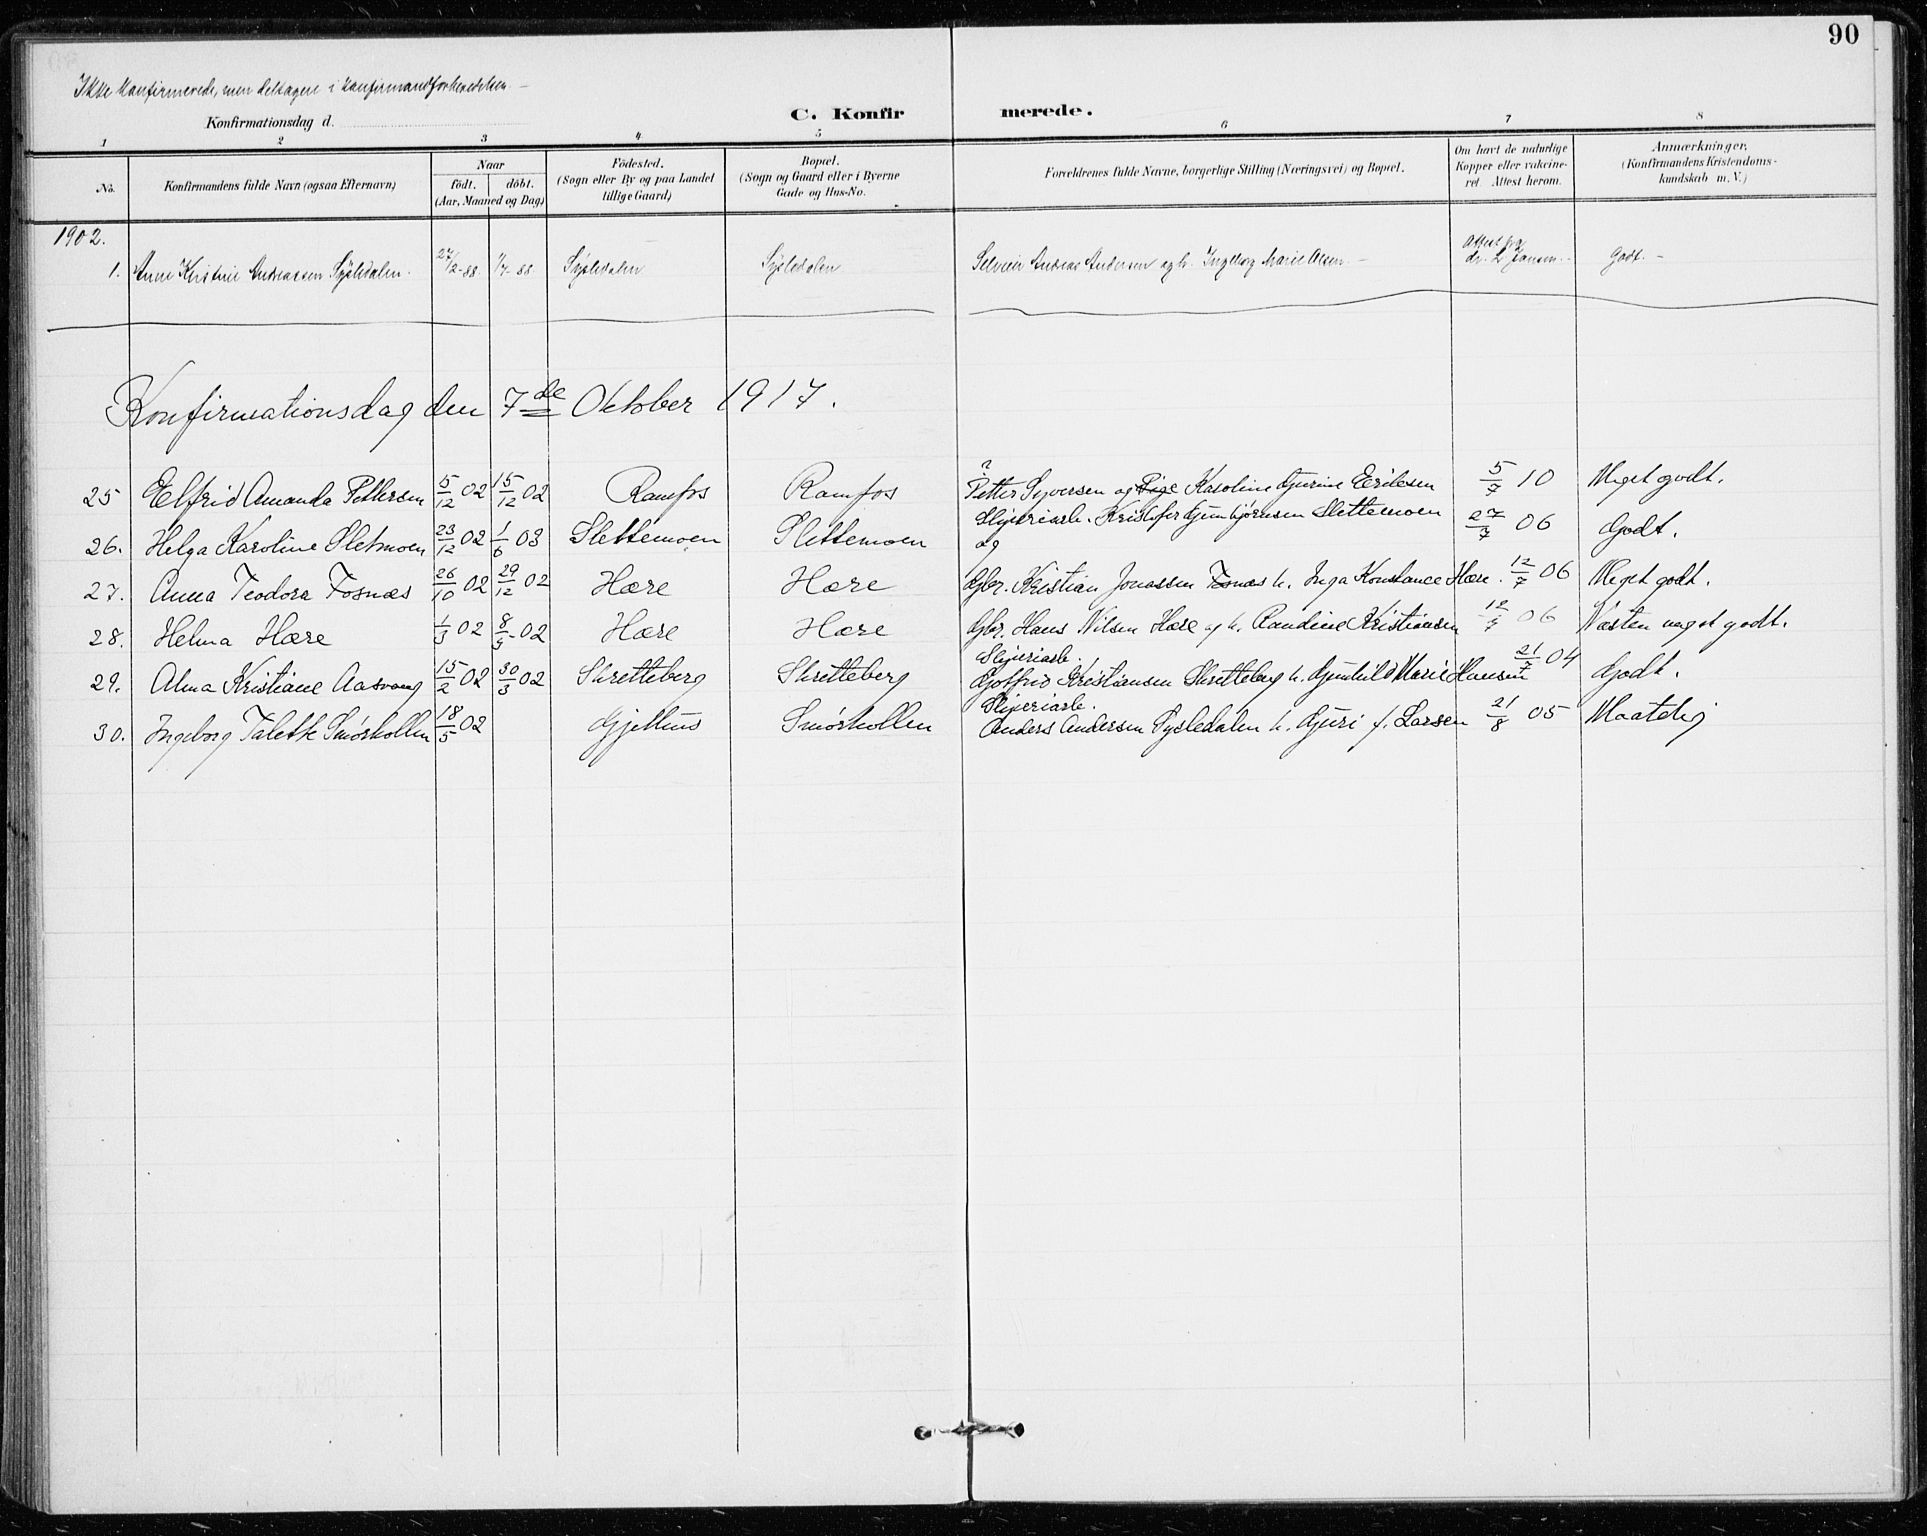 90
Ikke konfirmerede, men deltagere i konfirmandforberedelsen –
Konfirmationsdag d.
C. Konfir merede.
1 2 3 4 5 6 7 8
No. Konfirmandens fulde Navn (ogsaa Efternavn) Naar födt. döbt. (Aar, Maaned og Dag) Födested. (Sogn eller By og paa Landet tillige Gaard) Bopæl. (Sogn og Gaard eller i Byerne Gade og Hus-No. Forældrenes fulde Navne, borgerlige Stilling (Næringsvei) og Bopæl. Om havt de naturlige Kopper eller vakcineret. Attest herom. Anmærkninger, (Konfirmandens Kristendomskundskab m. V.)
1902.
1. Anne Kristine Andreassen Sysledalen. 27/2-88. 1/4-88 Sysledalen Sysledalen Selveier Andreas Andersen og h. Ingeborg Marie Olsen. – Attest fra dr. L. Jansen. – Godt. –
Konfirmationsdag den 7de Oktober 1917.
25 Elfrid Amanda Pettersen 5/12 02 15/12 02 Ramfos Ramfos Petter Syversen og Pige Karoline Gurine Eriksen 5/7 10 Meget godt.
26. Helga Karoline Sletmoen 23/12 02 1/6 03 Slettemoen Slettemoen Sliperiarb. Kristofer Gunbjørnsen Slettemoen og 27/7 06 Godt.
27. Anna Teodora Fosnæs 26/10 02 29/12 02 Hære Hære Gbr. Kristian Jonassen Fosnæs h. Inga Konstance Hære. 12/7 06 Meget godt.
28. Helma Hære 1/3 02 8/5-02 Hære Hære Gbr. Hans Nilsen Hære og h. Randine Kristiansen 12/7 06 Næsten meget godt.
29. Alma Kristiane Aasvang 15/2 02 30/3 02 Skretteberg Skretteberg Sliperiarb. Gotfrid Kristiansen Skretteberg h. Gunhild Marie Hansen 21/7 04 Godt.
30. Ingeborg Talette Smørkollen 18/5 02 Gjethus Smørkollen Sliperiarb. Anders Andersen Sysledalen h. Guri f. Larsen 21/8 05 Maatelig